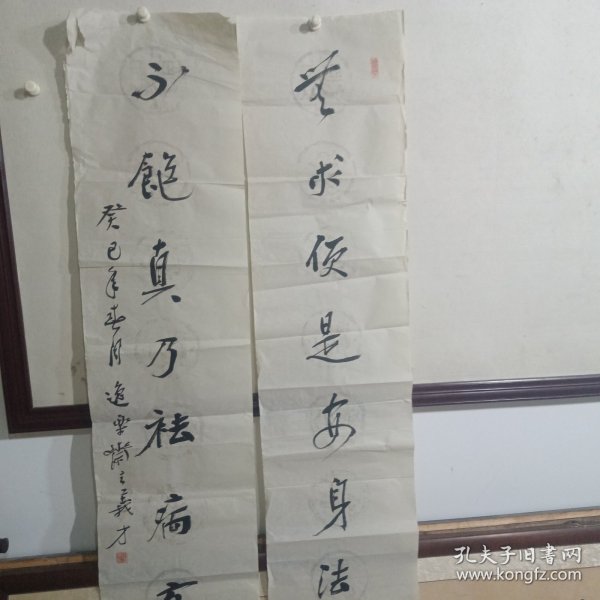 無求便是安身法
不飽真乃祛病方
癸巳年春月逸樂齋主義才
孔夫子旧书网
www.kongfz.com